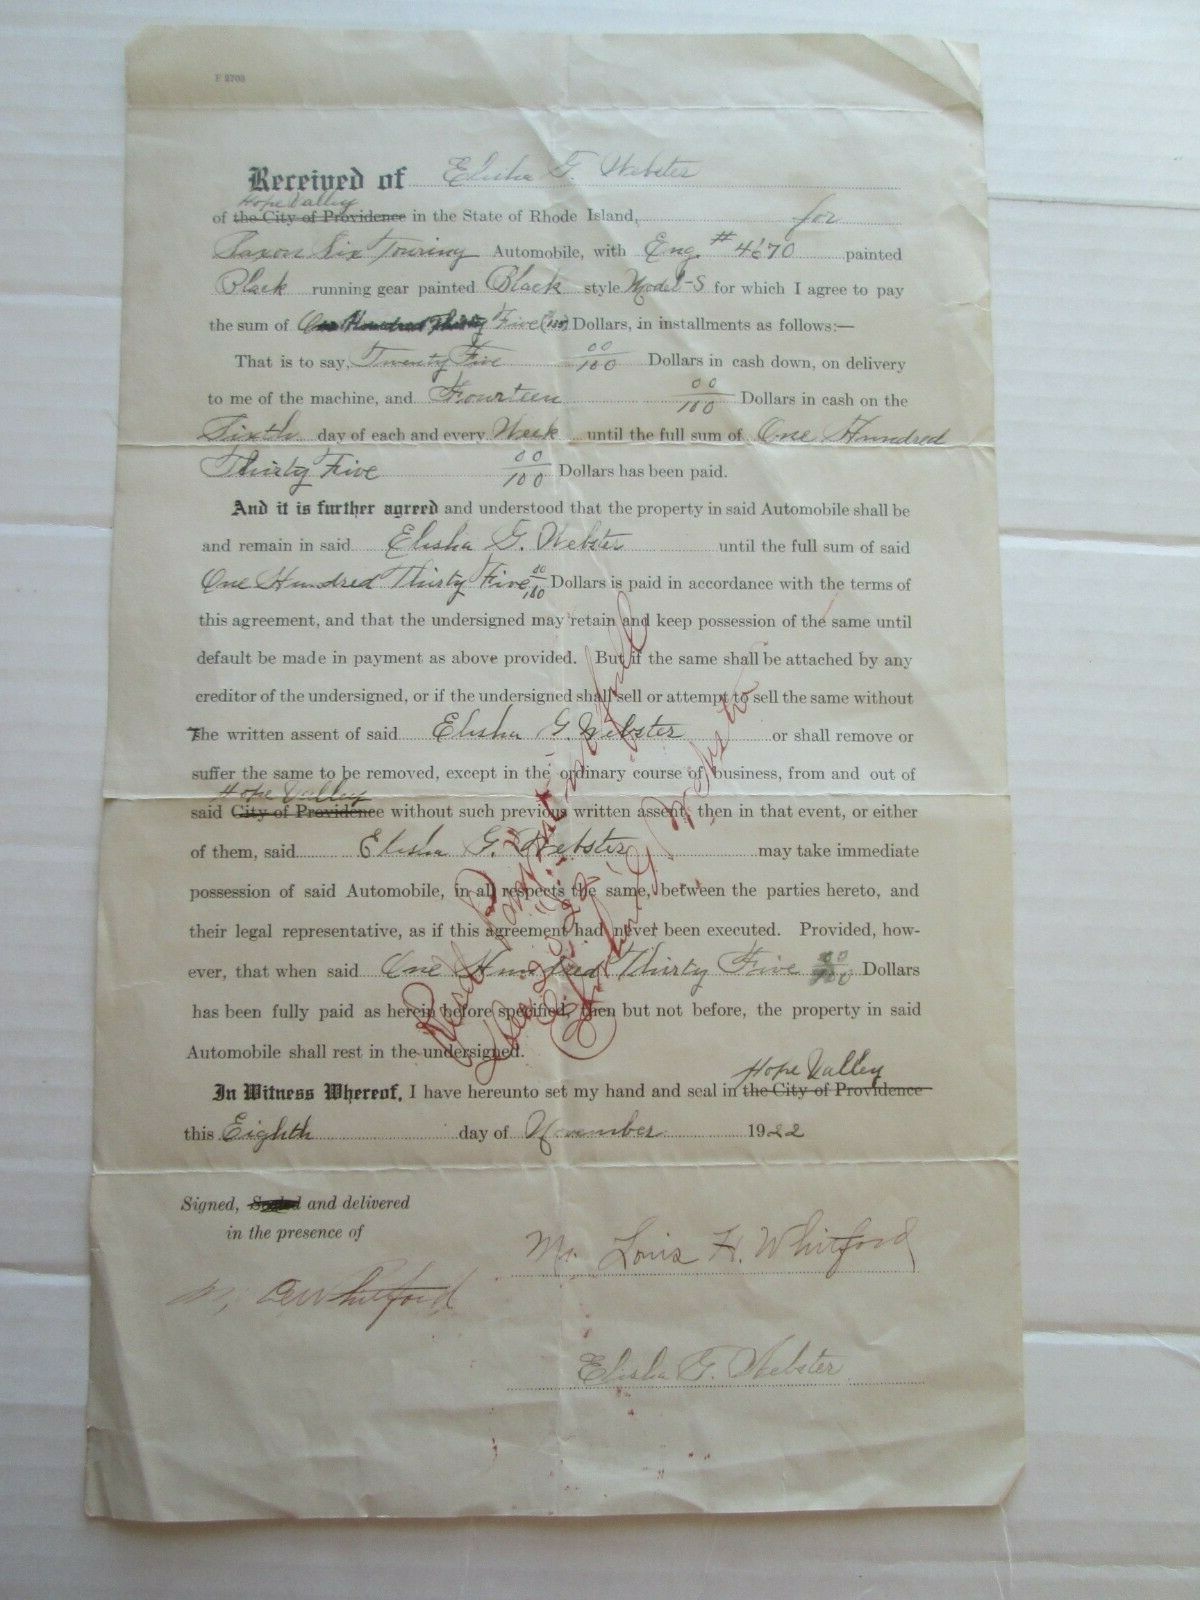 F 2703
Received of Elisha G. Webster
Hope Valley
of the City of Providence in the State of Rhode Island, for
Saxon Six Touring Automobile, with Eng. # 4670 painted
Black running gear painted Black style Model-S for which I agree to pay
the sum of One Hundred Thirty Five (135) Dollars, in installments as follows:—
That is to say, Twenty Five 00/100 Dollars in cash down, on delivery
to me of the machine, and Fourteen 00/100 Dollars in cash on the
Sixth day of each and every Week until the full sum of One Hundred
Thirty Five 00/100 Dollars has been paid.
And it is further agreed and understood that the property in said Automobile shall be
and remain in said Elisha G. Webster until the full sum of said
One Hundred Thirty Five 00/100 Dollars is paid in accordance with the terms of
this agreement, and that the undersigned may retain and keep possession of the same until
default be made in payment as above provided. But if the same shall be attached by any
creditor of the undersigned, or if the undersigned shall sell or attempt to sell the same without
the written assent of said Elisha G. Webster or shall remove or
suffer the same to be removed, except in the ordinary course of business, from and out of
Hope Valley
said City of Providence without such previous written assent, then in that event, or either
of them, said Elisha G. Webster may take immediate
possession of said Automobile, in all respects the same, between the parties hereto, and
their legal representative, as if this agreement had never been executed. Provided, how-
ever, that when said One Hundred Thirty Five 00/100 Dollars
has been fully paid as herein before specified, then but not before, the property in said
Automobile shall rest in the undersigned.
Hope Valley
In Witness Whereof, I have hereunto set my hand and seal in the City of Providence
this Eighth day of November 1922
Signed, Sealed and delivered
in the presence of
Mr. Louis H. Whitford
Whitford
Elisha G. Webster
Recd Payment in full
Elisha G. Webster